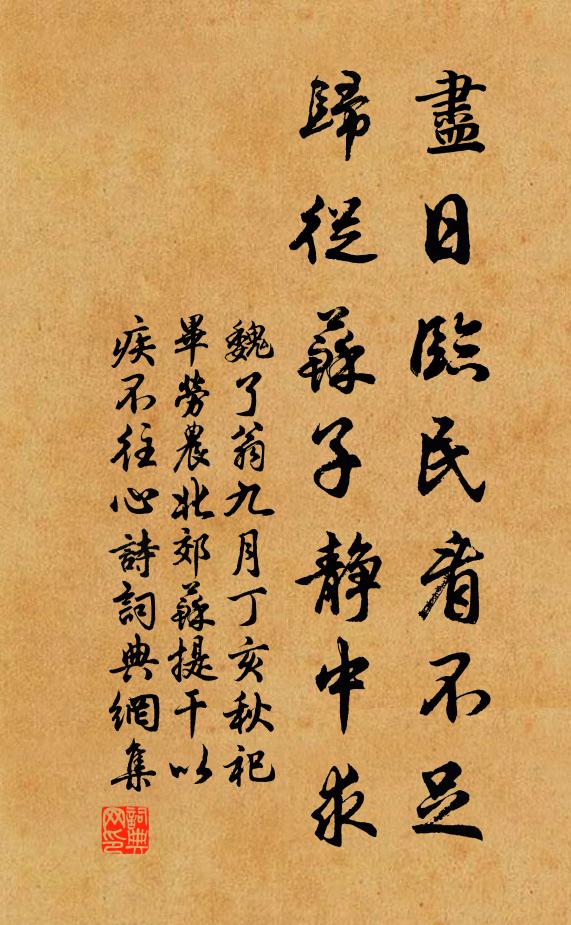 盡日臨民者不足
歸從蘇子靜中求
魏了翁九月丁亥秋祀
畢勞農北郊蘇提干以
疾不往心詩詞典網集
詞典网印